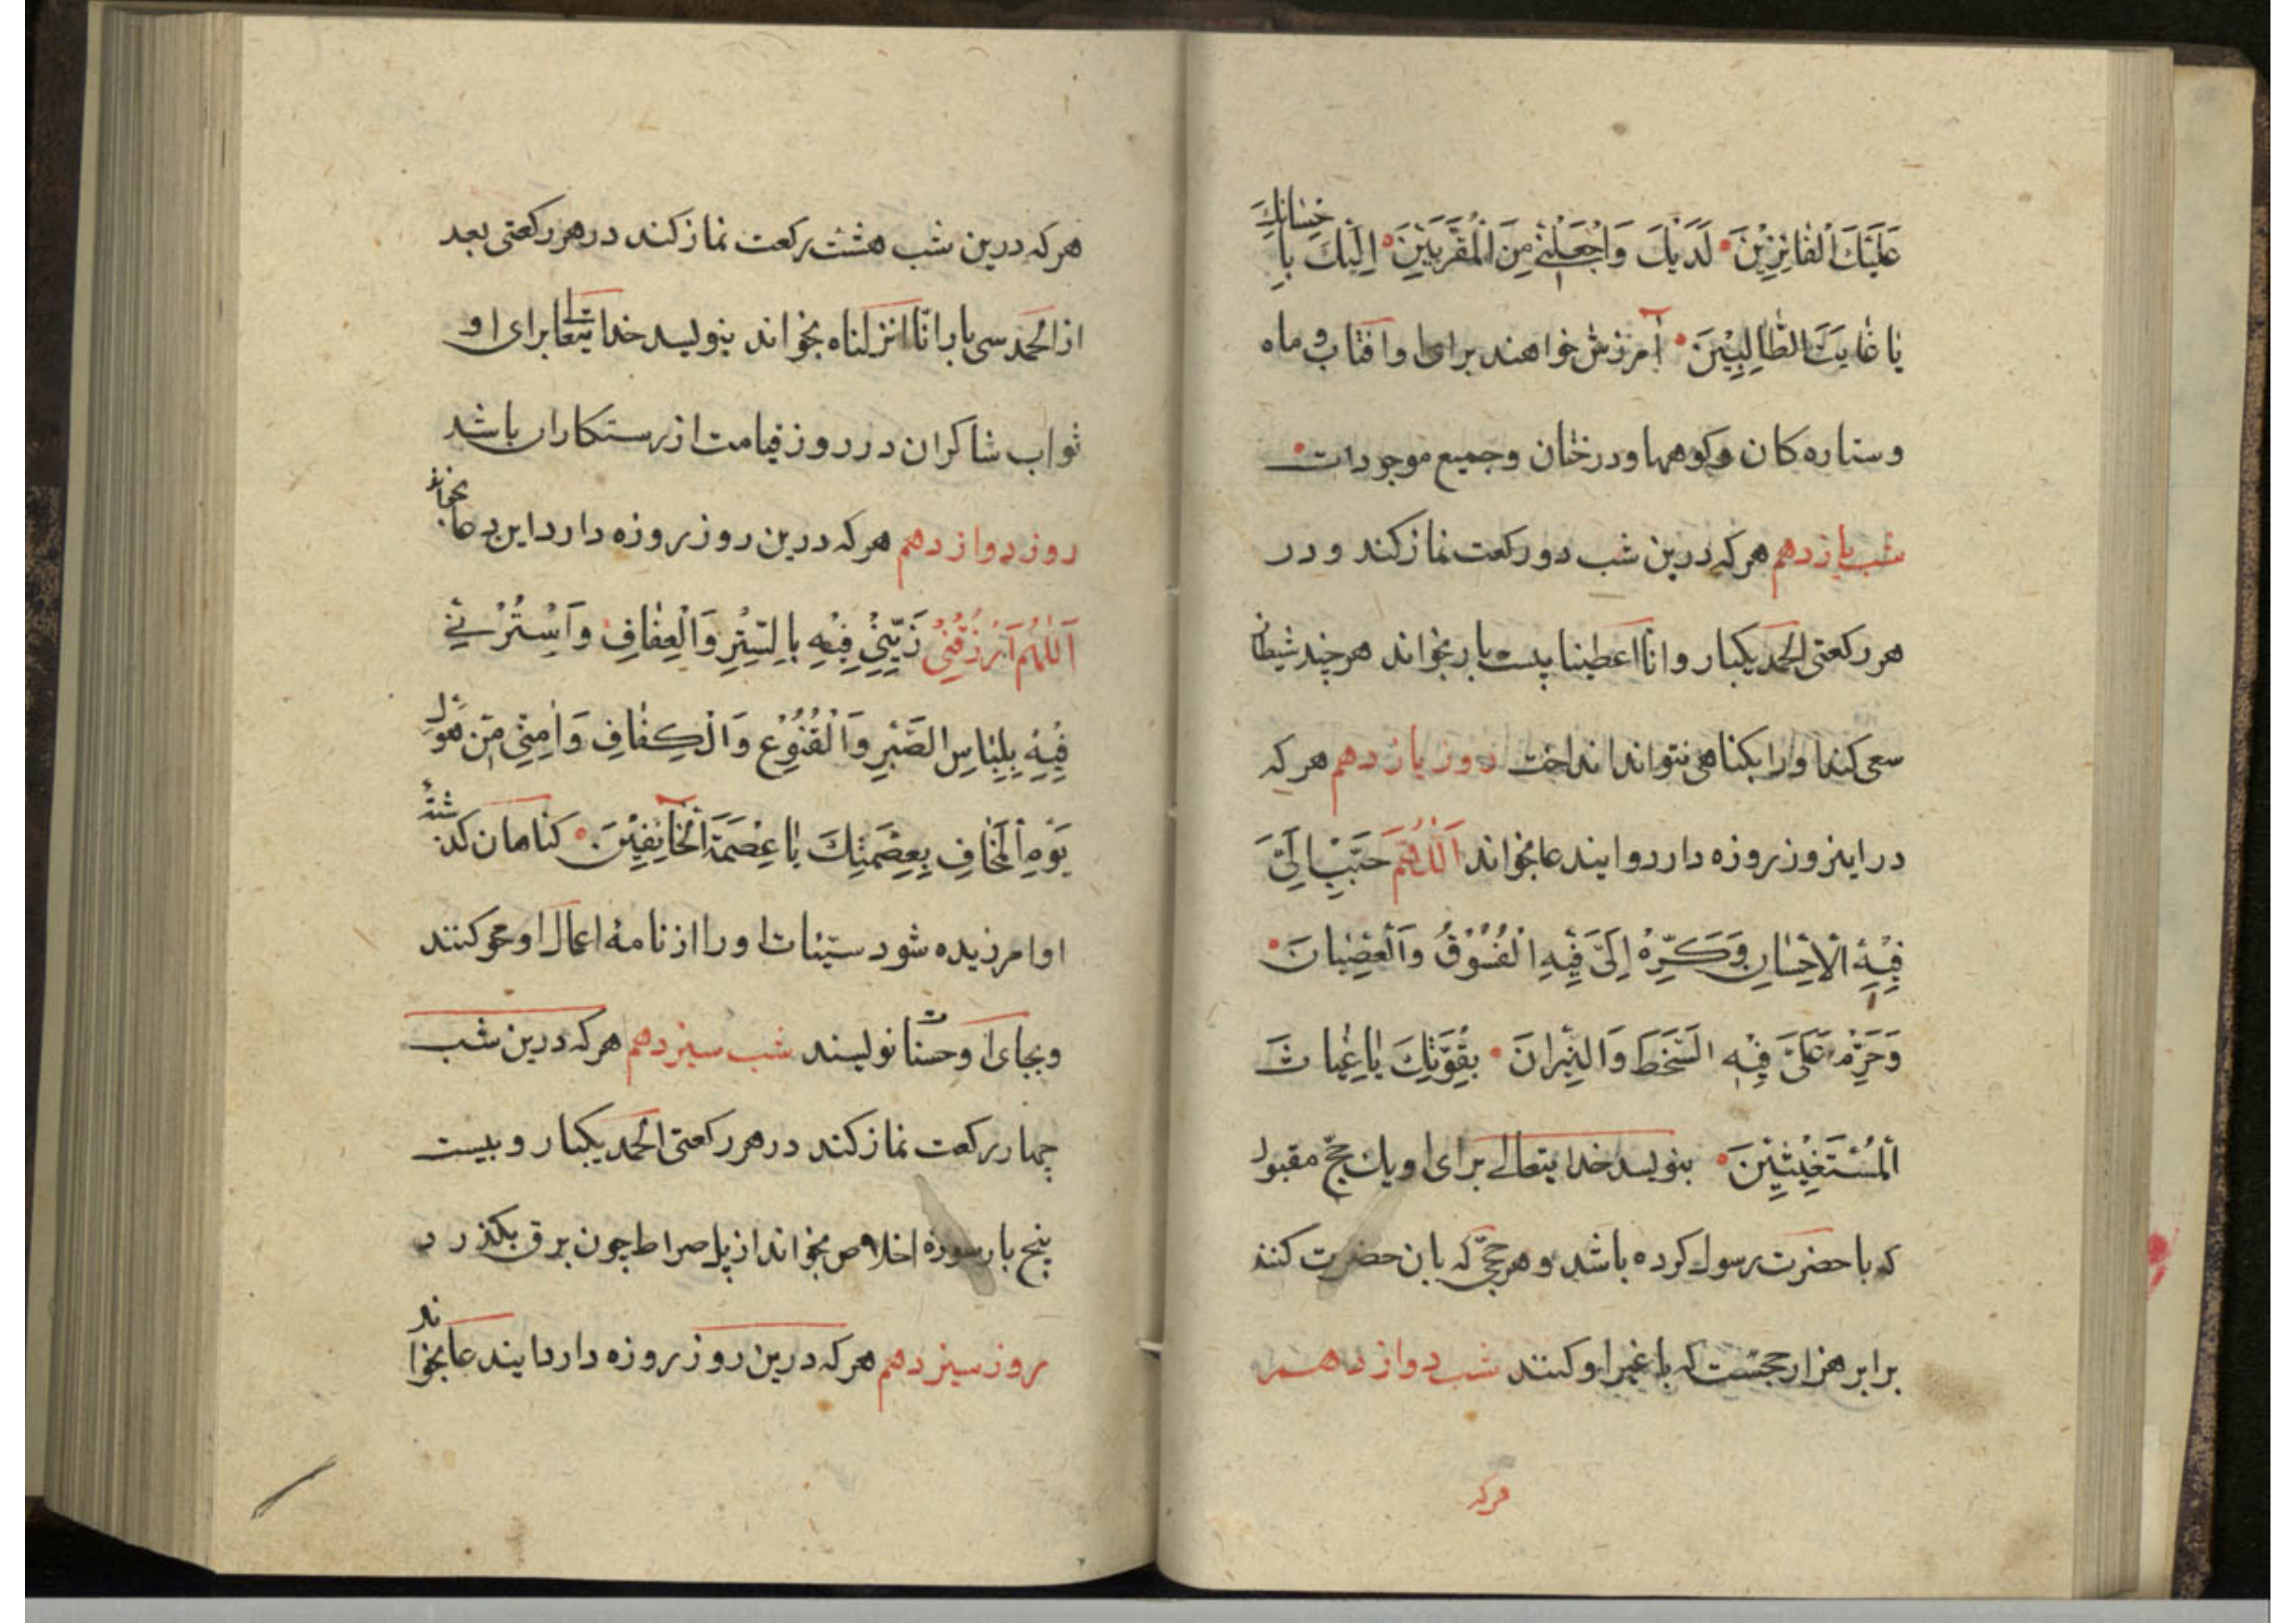 عَلَيْكَ الْفٰائِزِيْنَ لَدَيْكَ وَاجْعَلْنِي مِنَ الْمُقَرَّبِيْنَ اِلَيْكَ بِاِحْسٰانِكَ
يٰا غٰايَتَ الطّٰالِبِيْنَ آمرزش خواهند برای او آفتاب و ماه
و ستاره کان و کوهها و درختان و جمیع موجودات
شب یازدهم هر که درین شب دو رکعت نماز کند و در
هر رکعتی الحمد یکبار و انا اعطینا بیست بار بخواند هر چند شیطان
سعی کند او را بکناهی نتواند انداخت روز یازدهم هر که
در اینروز روزه دارد و ایندعا بخواند اَللّٰهُمَّ حَبِّبْ اِلَيَّ
فِيْهِ الْاِحْسٰانِ وَكَرِّهْ اِلَيَّ فِيْهِ الْفُسُوْقُ وَالْعِصْيٰانَ
وَحَرِّمْ عَلَيَّ فِيْهِ السَّخَطَ وَالنِّيْرانَ بِقُوَّتِكَ يٰا غِيٰاثَ
الْمُسْتَغِيْثِيْنَ بنویسد خدایتعالی برای او یک حج مقبول
که با حضرت رسول کرده باشد و هر حجی که بان حضرت کنند
برابر هزار حجست که با غیر او کنند شب دوازدهم
هر که
هر که درین شب هشت رکعت نماز کند در هر رکعتی بعد
از الحمد سی بار انّا انزلناه بخواند بنویسد خدایتعا برای او
ثواب شاکران در روز قیامت از رستکاران باشد
روز دوازدهم هر که درین روز روزه دارد این دعا بخواند
اَللّٰهُمَّ اَرْزُقْنِي زَيِّنِّي فِيْهِ بِالسِّتْرِ وَالْعِفٰافِ وَاَسْتُرْنِي
فِيْهِ بِلِبٰاسِ الصَّبْرِ وَالْقُنُوْعِ وَالْكِفٰافِ وَاٰمِنِّي مِن هَولِ
يَوْمِ الْمَخٰافِ بِعِصْمَتِكَ يٰا عِصْمَةَ الْخٰآئِفِيْنَ کناهان کذشته
او امرزیده شود سیّئات او را از نامهٔ اعمال او محو کنند
و بجای او حسنات نویسند شب سیزدهم هر که درین شب
چهار رکعت نماز کند در هر رکعتی الحمد یکبار و بیست
پنج بار سوره اخلاص بخواند از پل صراط چون برق بکذرد
روز سیزدهم هر که درین روز روزه دارد ایندعا بخواند